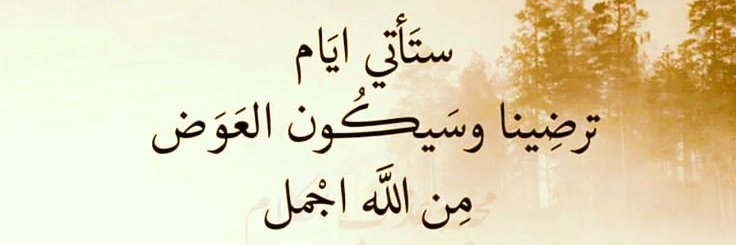 ستَأتي ايَام
ترضِينا وسَيكُون العَوَض
مِن اللَّه اجْمل